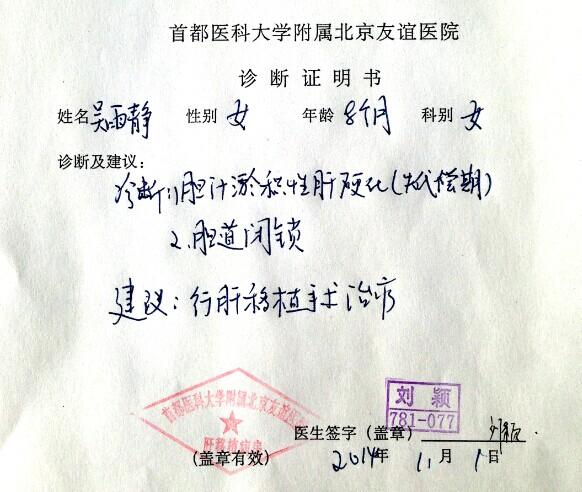 首都医科大学附属北京友谊医院
诊断证明书
姓名 吴雨静 性别 女 年龄 8个月 科别 女
诊断及建议：
诊断：1.胆汁淤积性肝硬化（失代偿期）
2.胆道闭锁
建议：行肝移植手术治疗
首都医科大学附属北京友谊医院
肝移植病房
刘颖
781-077
医生签字（盖章） 刘颖
(盖章有效) 2014年 11月 1日